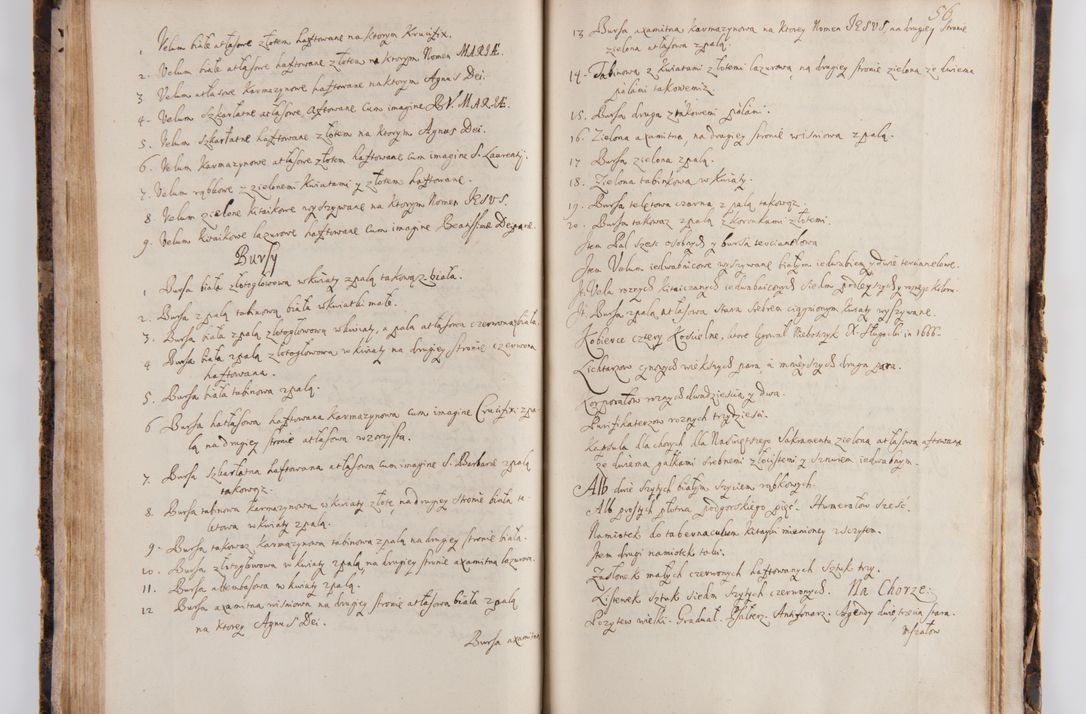 1 Velum białe atłasowe złotem haftowane na ktorym Krucifix.
2. Velum białe atłasowe haftowane złotem na ktorym Nomen MARIÆ.
3 Velum atłasowe karmazynowe haftowane na ktorym Agnus Dei.
4. Velum szkarłatne atłasowe aftowane cum imagine B. V. MARIÆ.
5. Velum szkarłatne haftowane złotem na ktorym Agnus Dei.
6. Velum karmazynowe atłasowe złotem haftowane cum imagine S. Laurentij.
7. Velum rąbkowe z zielonemi kwiatami y złotem haftowane.
8. Velum zielone kitaikowe wyszywane na ktorym Nomen IESVS.
9. Velum kitaikowe lazurowe haftowane cum imagine Beatissime Deiparae.
Bursy
1 Bursa biała złotogłowowa w kwiaty z palą takową z biała.
2. Bursa z palą tabinową biała w kwiatki małe.
3. Bursa biała z palą złotogłowową w kwiaty, a pala atłasowa czerwona, biała.
4 Bursa biała z palą złotogłowowa w kwiaty na drugiey stronie czerwona
haftowana.
5. Bursa biała tabinowa z palą.
6 Bursa hatłasowa haftowana karmazynowa cum imagine Crucifixi z pa-
lą na drugiey stronie atłasowa wzorzysta.
7. Bursa szkarłatna haftowana atłasowa cum imagine S. Barbarae z palą
takową.
8. Bursa tabinowa karmazynowa w kwiaty złote na drugiey stronie biała te-
letowa w kwiaty z palą.
9. Bursa takowaz karmazynowa tabinowa z palą na drugiey stronie biała.
10. Bursa złotogłowowa w kwiaty z palą, na drugiey stronie axamitna lazurowa.
11. Bursa altembasowa w kwiaty z palą.
12 Bursa axamitna wisniowa na drugiey stronie atłasowa biała z palą
na ktorey Agnus Dei.
Bursa axamitna
56.
13 Bursa axamitna karmazynowa na ktorey Nomen IESVS, na drugiey stronie
zielona atłasowa z palą.
14. Tabinowa z kwiatami złotemi lazurowa, na drugiey stronie zielona ze dwiema
palami takowemiz
15. Bursa druga z takowemi palami.
16. Zielona axamitna, na drugiey stronie wisniowa z palą.
17 Bursa zielona z palą.
18. Zielona tabinkowa w kwiaty.
19. Bursa teletowa czarna z palą takową.
20. Bursa takowaz z palą z koronkami złotemi.
Item Pal szesc osobnych y bursa tercianelowa
Item Velum iedwabnicowe wyszywane białym iedwabiem y dwie tercianelowe.
It. Vela roznych kitaiczanych iedwabnicowych siedm podleyszych y roznego koloru.
It. Bursa z palą atłasowa stara srebrem ciągnionym kwiaty wyszywane.
Kobierce cztery Kościelne, ktore sprawił Nieboszczyk X. Sługocki in 1666.
Lichtarzow cynowych wiekszych para a mnieyszych druga para.
Korporałow roznych dwadziescia y dwa.
Purifikaterzow roznych trzydziesci.
Kapsula dla chorych dla Naswiętszego Sakramentu zielona atłasowa aftowana
ze dwiema gałkami srebrnemi złocistemi y sznurem iedwabnym.
Alb dwie szytych białym szyciem rąbkowych.
Alb prostych płotna podgorskiego pięć. Humerałow sześć.
Namiotek do tabernaculum kitayki mienioney z szczytem.
Item drugi namiotek tabi.
Zasłonek małych czerwonych haftowanych sztuk trzy.
Listewek sztuk siedm szytych czerwonych. Na Chorze.
Pozytew wielki. Graduał. Psałterz. Antyfonarz. Agendy dwie, trzecia stara.
Mszałow